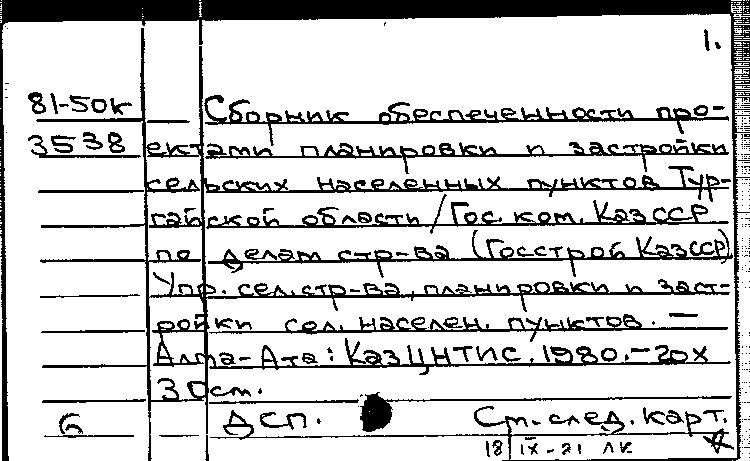 1.
81-50к Сборник обеспеченности про-
3538 ектами планировки и застройки
сельских населенных пунктов Тур-
гайской области / Гос. ком. КазССР
по делам стр-ва (Госстрой КазССР)
Упр. сел. стр-ва, планировки и заст-
ройки сел. населен. пунктов. —
Алма-Ата: КазЦНТИС, 1980. - 20х
30см.
6 ДСП. См. след. карт.
18/IX-81 ЛК